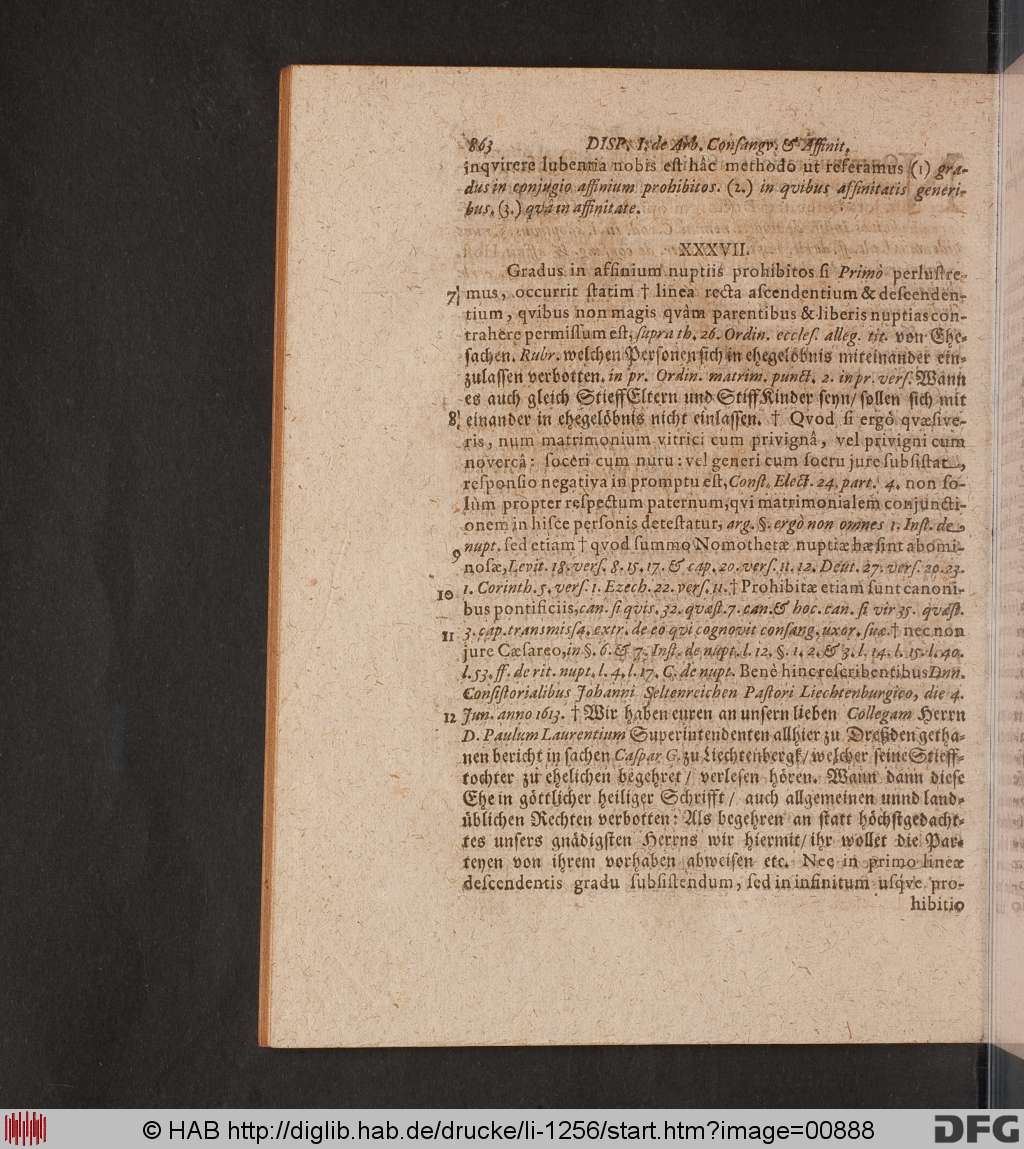 863 DISP. I. de Arb. Consangv. & Affinit.
inqvirere lubentia nobis est hâc methodo ut referamus (1) gra-
dus in conjugio affinium prohibitos. (2.) in qvibus affinitatis generi-
bus, (3.) qvâ in affinitate.
XXXVII.
Gradus in affinium nuptiis prohibitos si Primò perlustre-
7 mus, occurrit statim † linea recta ascendentium & descenden-
tium, qvibus non magis qvàm parentibus & liberis nuptias con-
trahere permissum est, supra th. 26. Ordin. eccles. alleg. tit. von Ehe-
sachen. Rubr. welchen Personen sich in ehegelöbnis miteinander ein-
zulassen verbotten. in pr. Ordin. matrim. punct. 2. in pr. vers. Wann
es auch gleich StieffEltern und StiffKinder seyn/ sollen sich mit
8 einander in ehegelöbnis nicht einlassen. † Qvod si ergò qvæsive-
ris, num matrimonium vitrici cum privignâ, vel privigni cum
novercâ: soceri cum nuru: vel generi cum socru jure subsistat,
responsio negativa in promptu est, Const. Elect. 24. part. 4. non so-
lùm propter respectum paternum, qvi matrimonialem conjuncti-
onem in hisce personis detestatur, arg. §. ergò non omnes 1. Inst. de
9 nupt. sed etiam † qvod summo Nomothetæ nuptiæ hæ sint abomi-
nosæ, Levit. 18. vers. 8. 15. 17. & cap. 20. vers. 11. 12. Deut. 27. vers. 20. 23.
10 1. Corinth. 5. vers. 1. Ezech. 22. vers. 11. † Prohibitæ etiam sunt canoni-
bus pontificiis, can. si qvis. 32. qvæst. 7. can. & hoc. can. si vir 35. qvæst.
11 3. cap. transmissa. extr. de eo qvi cognovit consang. uxor. suæ. † nec non
jure Cæsareo, in §. 6. & 7. Inst. de nupt. l. 12. §. 1. 2. & 3. l. 14. l. 15. l. 40.
l. 53. ff. de rit. nupt. l. 4. l. 17. C. de nupt. Benè hinc rescribentibus Dnn.
Consistorialibus Johanni Seltenreichen Pastori Liechtenburgico, die 4.
12 Jun. anno 1613. † Wir haben euren an unsern lieben Collegam Herrn
D. Paulum Laurentium Superintendenten allhier zu Dreßden getha-
nen bericht in sachen Caspar G. zu Liechtenbergk/ welcher seine Stieff-
tochter zu ehelichen begehret/ verlesen hören. Wann dann diese
Ehe in göttlicher heiliger Schrifft/ auch allgemeinen unnd land-
üblichen Rechten verbotten: Als begehren an statt höchstgedacht-
tes unsers gnädigsten Herrns wir hiermit/ ihr wollet die Par-
teyen von ihrem vorhaben abweisen etc. Nec in primo lineæ
descendentis gradu subsistendum, sed in infinitum usqve pro-
hibitio
© HAB http://diglib.hab.de/drucke/li-1256/start.htm?image=00888
DFG